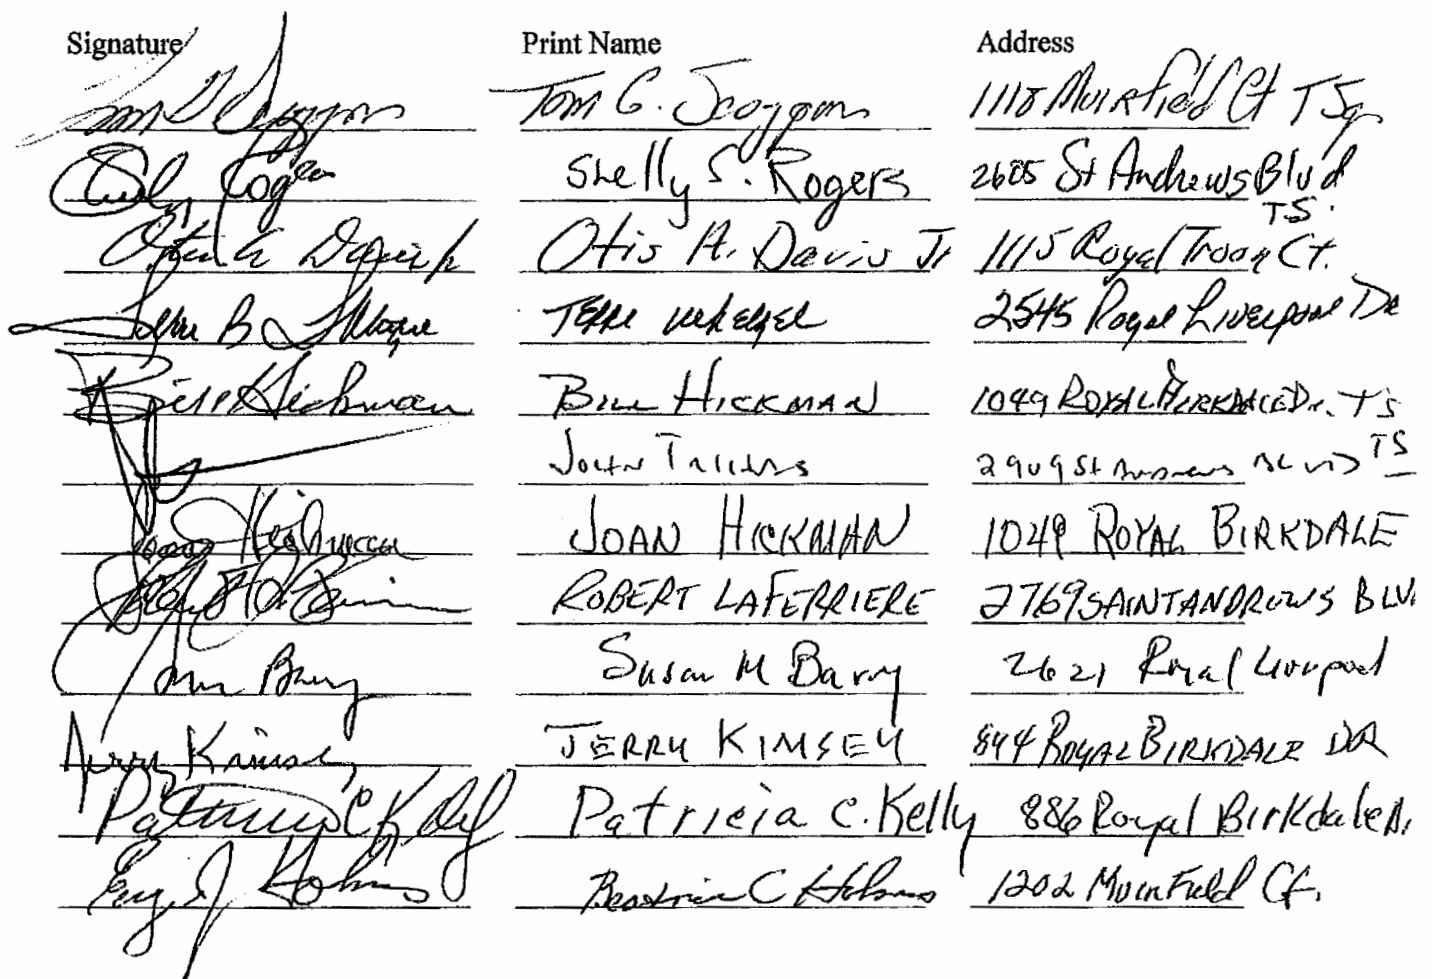 Signature Print Name Address
Tom G. Scoggins 1118 Muirfield Ct TS
Shelly S. Rogers 2685 St Andrews Blvd TS.
Otis A. Davis Jr 1115 Royal Troon Ct.
2545 Royal Liverpool Dr
Bill Hickman Bill Hickman 1049 Royal Birkdale Dr. TS
John 2909 St Andrews BLVD TS
Joan Hickman JOAN HICKMAN 1049 ROYAL BIRKDALE
ROBERT LAFERRIERE 2769 SAINT ANDROWS BLV
Susan M Barry 2621 Royal Liverpool
Jerry Kimsey JERRY KIMSEY 844 ROYAL BIRKDALE DR
Patricia C Kelly Patricia C. Kelly 886 Royal Birkdale Dr
Beatrice C Holmes 1202 Muirfield Ct.